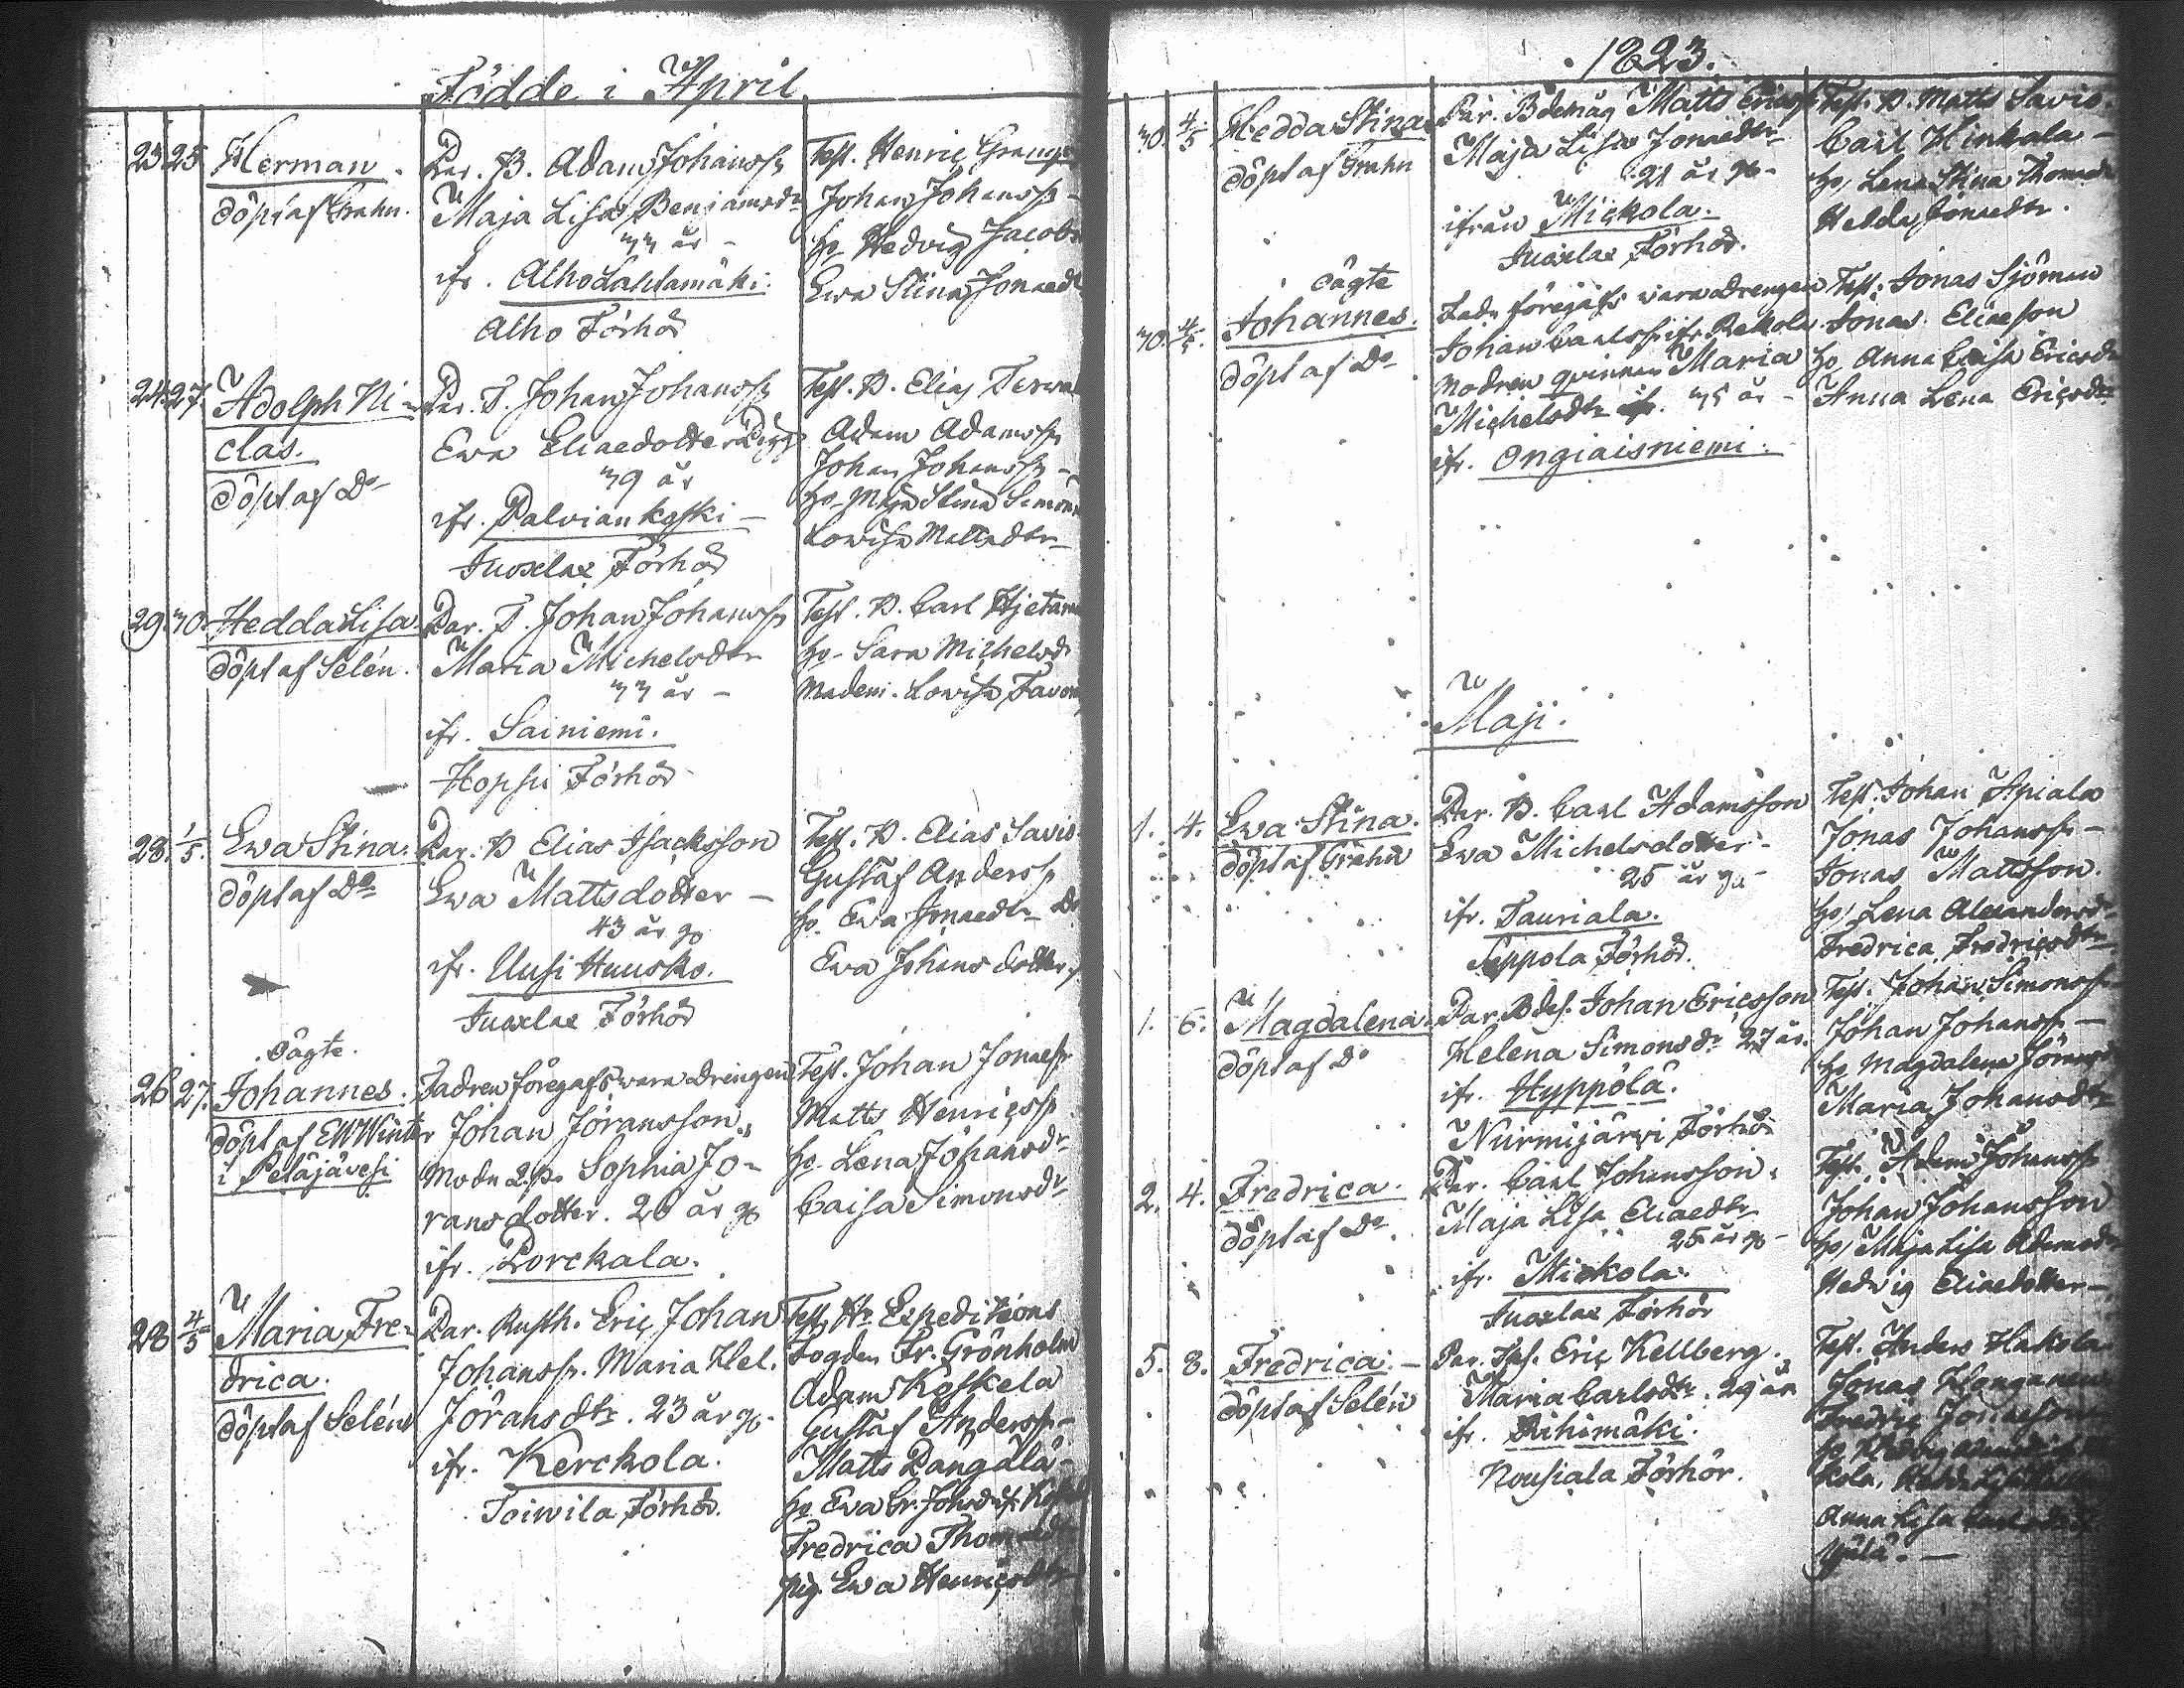 Födde i April
23 25 Herman.
döpt af Grahn.
Par. B. Adam Johanss:
Maja Lisa Benjamsdr
33 år -
ifr. Alho Lahdamäki.
Alho Förhör
Test. Henric
Johan Johanss: -
ho Hedvig Jacobs
Ewa Stina Jonaed
24. 27. Adolph Ni-
clas.
döpt af Do
Par. T. Johan Johanss:
Ewa Eliaedotter
39 år
ifr. Palviankoski -
Juoxlax Förhör
Test. B. Elias
Adam Adamss:
Johan Johanss: -
ho Maja Stina Simons
Lowisa Mattsdtr
29. 30. Hedda Lisa.
döpt af Selén.
Par. T. Johan Johanss:
Maria Michelsdtr
33 år -
ifr. Sainiemi.
Hopsu Förhör
Test. B. Carl
ho - Sara Michelsd:
Madem. Lowisa
28. 1/5. Ewa Stina.
döpt af Do
Par. B Elias Isacksson
Ewa Mattsdotter -
43 år g:
ifr. Uusi Huusko.
Juoxlax Förhör
Test. B. Elias Savio
Gustaf Anderss:
ho. Ewa Jonaedtr
Ewa Johansdotter
oägte.
26 27. Johannes.
döpt af EW Winter
i Petäjävesi
Fadren föregafs vara Drengen
Johan Jöransson,
Modn Sophia Jö-
ransdotter. 26 år g:
ifr. Porckala.
Test. Johan Jonaess:
Matts Henricss:
ho. Lena Johansdr
Caisa Simonsdr
28 4/5 Maria Fre-
drica.
döpt af Selén
Par. Rusth. Eric Johan
Johanss:. Maria Hel.
Jöransdtr. 23 år g:.
ifr. Kerckola.
Toiwila Förhör.
Test. Hr Expeditions
Fogden Fr. Grönholm
Adam Koskela
Gustaf Anderss: -
Matts
ho Ewa
Fredrica
pig. Ewa Henricsdtr
1823.
30. 4/5 Hedda Stina
döpt af Grahn
Par. Matts Ericss:
Maja Lisa Jonaedtr
21 år g: -
ifrån Mickola.
Juoxlax Förhör.
Test. B. Matts Savio.
Carl Hinkala -
ho, Lena Stina Thomaed
Hedda Jonaedtr.
oägte
30. 4/5. Johannes.
döpt af Do
Fadn föregafs vara Drengen
Johan Carlss: ifr. Rekola.
Modren qvinnan Maria
Michelsdtr 35 år -
ifr. Ongiaisniemi.
Test. Jonas Sjöman
Jonas Eliaeson
ho Anna Caisa Ericsdr
Anna Lena Ericsdtr
Maji.
1. 4. Ewa Stina.
döpt af Grahn
Par. B. Carl Adamsson
Ewa Michelsdotter
25 år g: -
ifr. Tauriala.
Seppola Förhör.
Test. Johan Apiala
Jonas Johanss: -
Jonas Mattsson.
ho, Lena Alexandersdr
Fredrica Fredricsdtr
1. 6. Magdalena.
döpt af Do
Par. Johan Ericsson
Helena Simonsdr 27 år.
ifr. Hyppölä.
Nurmijärvi Förhör
Test. Johan Simonss:
Johan Johanss: -
ho Magdalena Jörans
Maria Johansdtr
2. 4. Fredrica.
döpt af Do.
Par. Carl Johansson.
Maja Lisa Eliaedtr
25 år g: -
ifr. Mickola.
Juoxlax Förhör
Test. Adam Johanss:
Johan Johansson
ho, Maja Lisa Adamsdr
Hedwig Eliaedotter -
5. 8. Fredrica. -
döpt af Selén
Par. Eric Kellberg.
Maria Carlsdtr. 29 år
ifr. Rihimäki.
Nousiala Förhör.
Test. Anders Hakola
Jonas
Fredric Jonaeson
ho
kola.
Anna Lisa